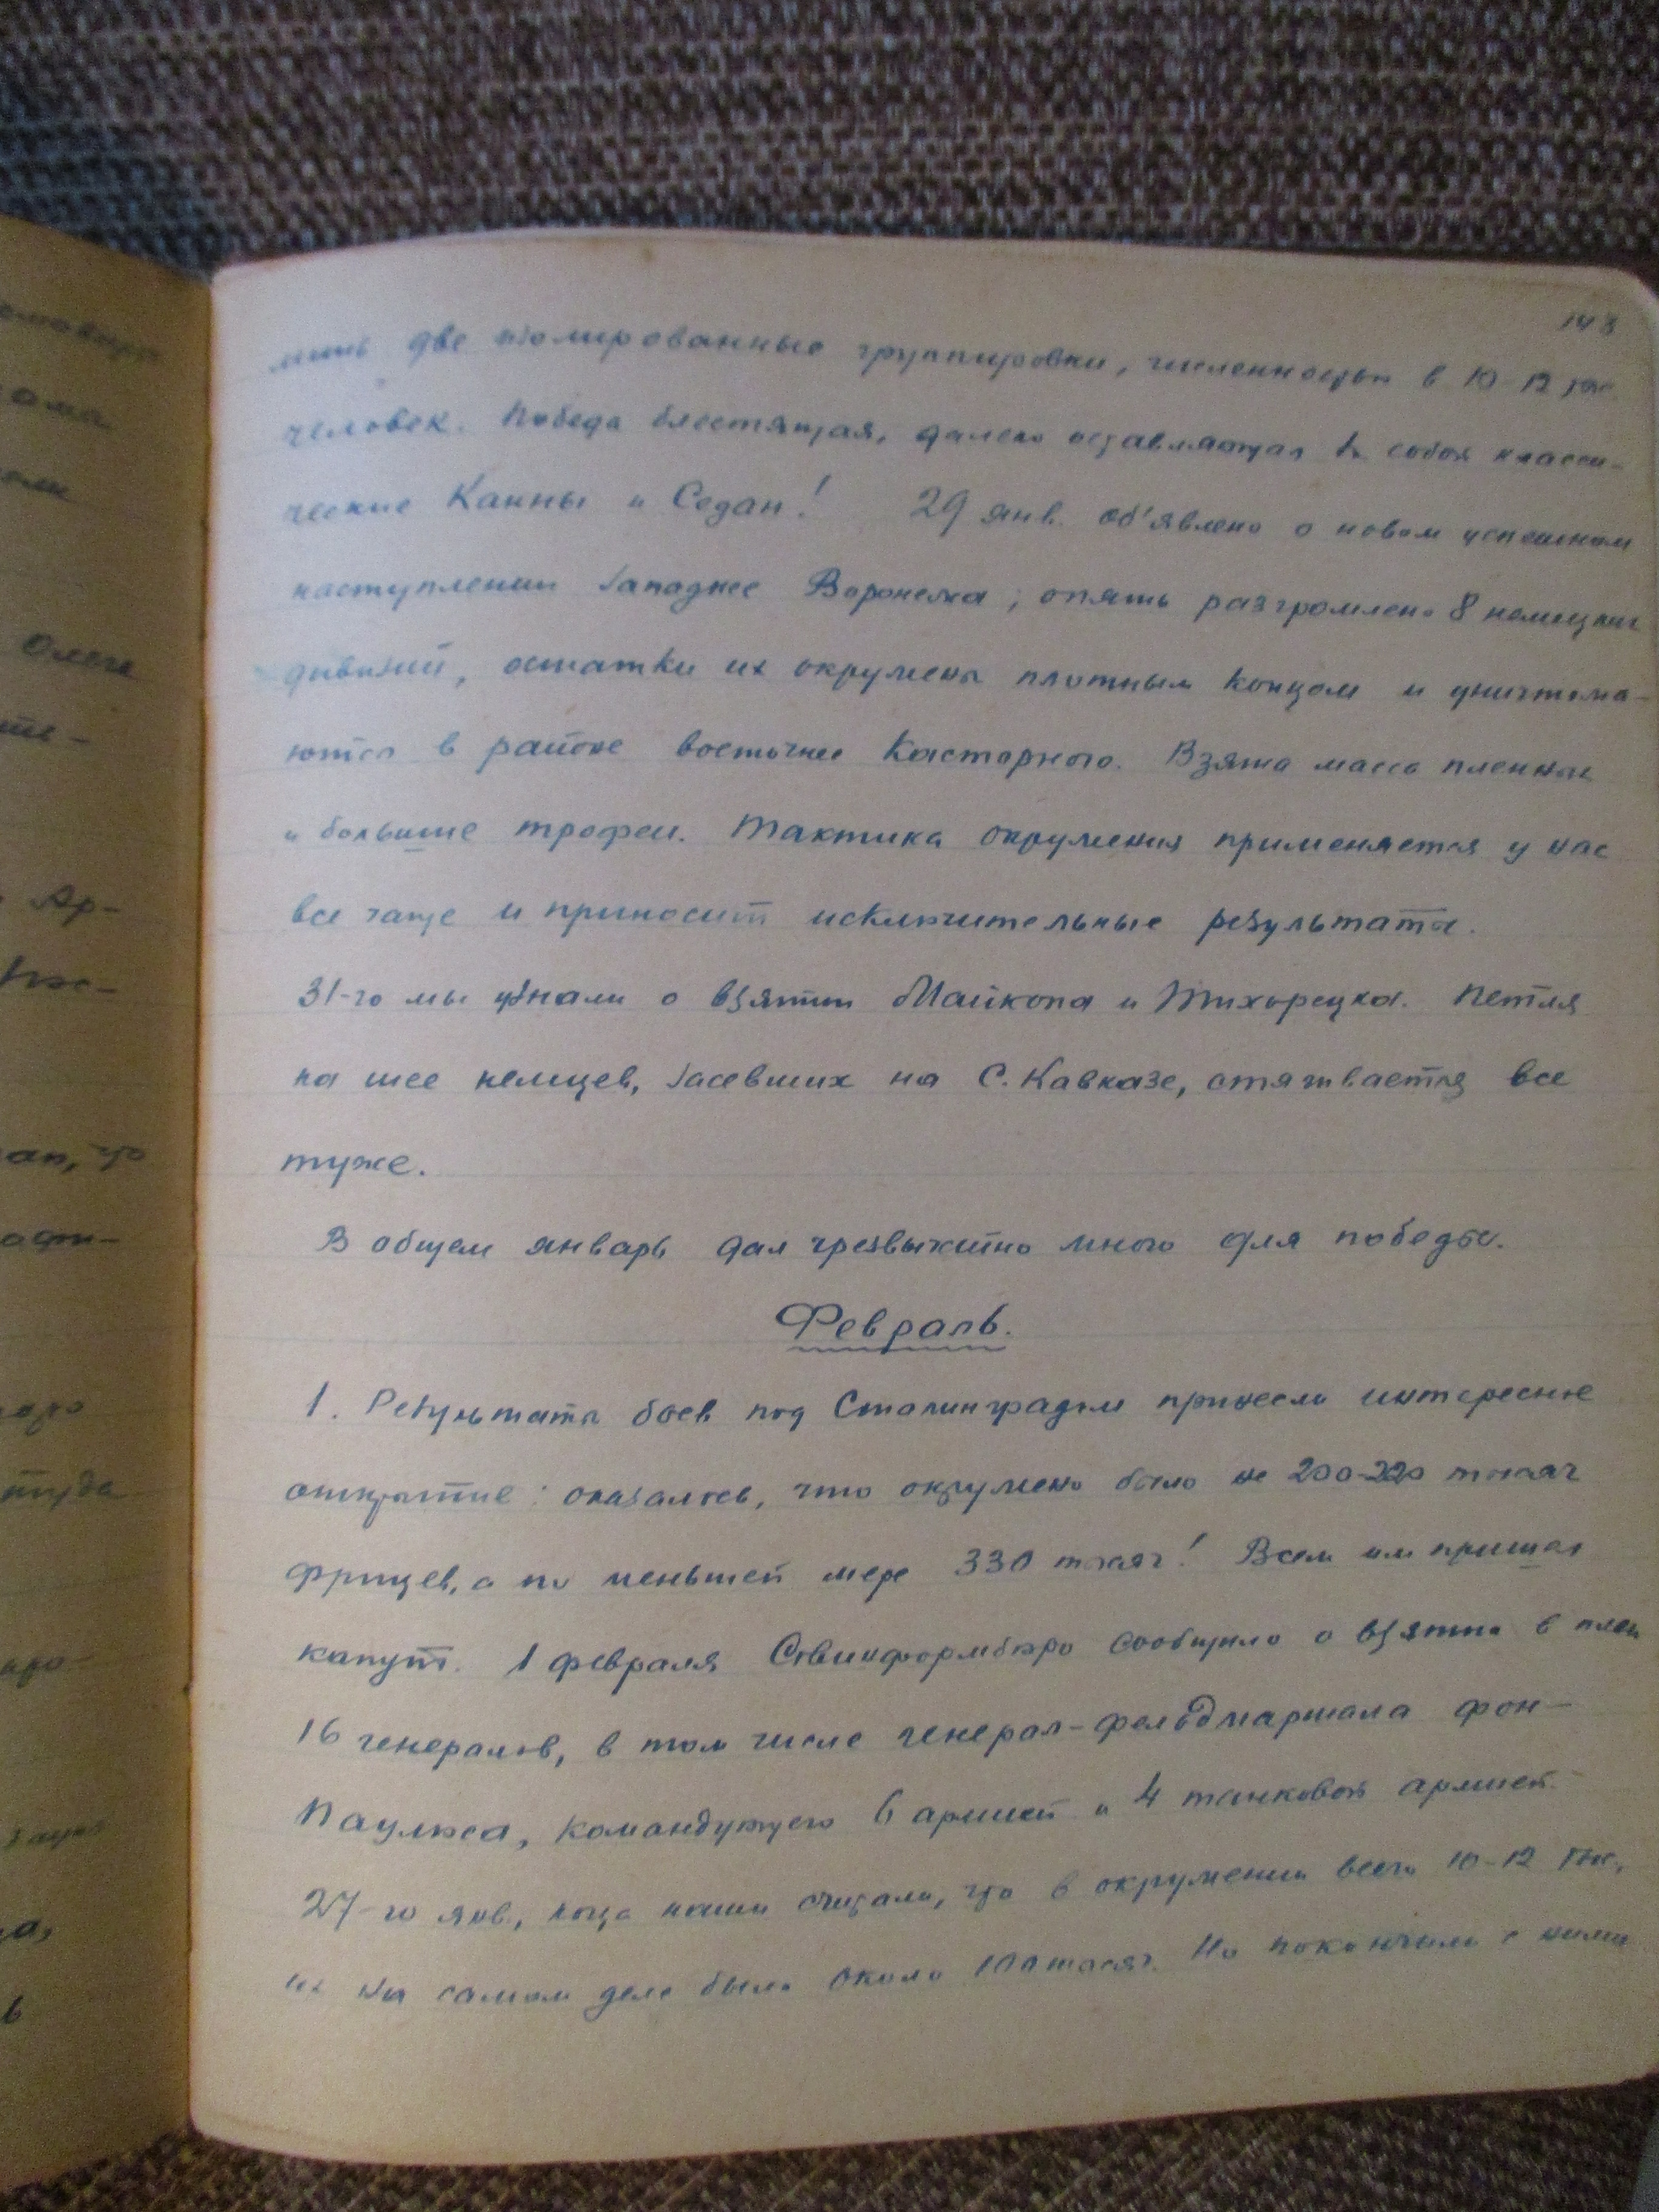 148
лишь две изолированные группировки, численностью в 10-12 тыс.
человек. Победа блестящая, далеко оставляющая за собой класси-
ческие Канны и Седан! 29 янв. об'явлено о новом успешном
наступлении западнее Воронежа; опять разгромлено 8 немецких
дивизий, остатки их окружены плотным кольцом и уничтожа-
ются в районе восточнее Касторного. Взята масса пленных
и большие трофеи. Тактика окружения применяется у нас
все чаще и приносит исключительные результаты.
31-го мы узнали о взятии Майкопа и Тихорецка. Петля
на шее немцев, засевших на С. Кавказе, стягивается все
туже.
В общем январь дал чрезвычайно много для победы.
Февраль.
1. Результаты боев под Сталинградом принесли интересное
открытие: оказалось, что окружено было не 200-220 тысяч
фрицев, а по меньшей мере 330 тысяч! Всем им пришел
капут. 1 февраля Совинформбюро сообщило о взятии в плен
16 генералов, в том числе генерал-фельдмаршала фон-
Паулюса, командующего 6 армией и 4 танковой армией.
27-го янв., когда наши считали, что в окружении всего 10-12 тыс.,
их на самом деле было около 100 тысяч. Но покончили с ними